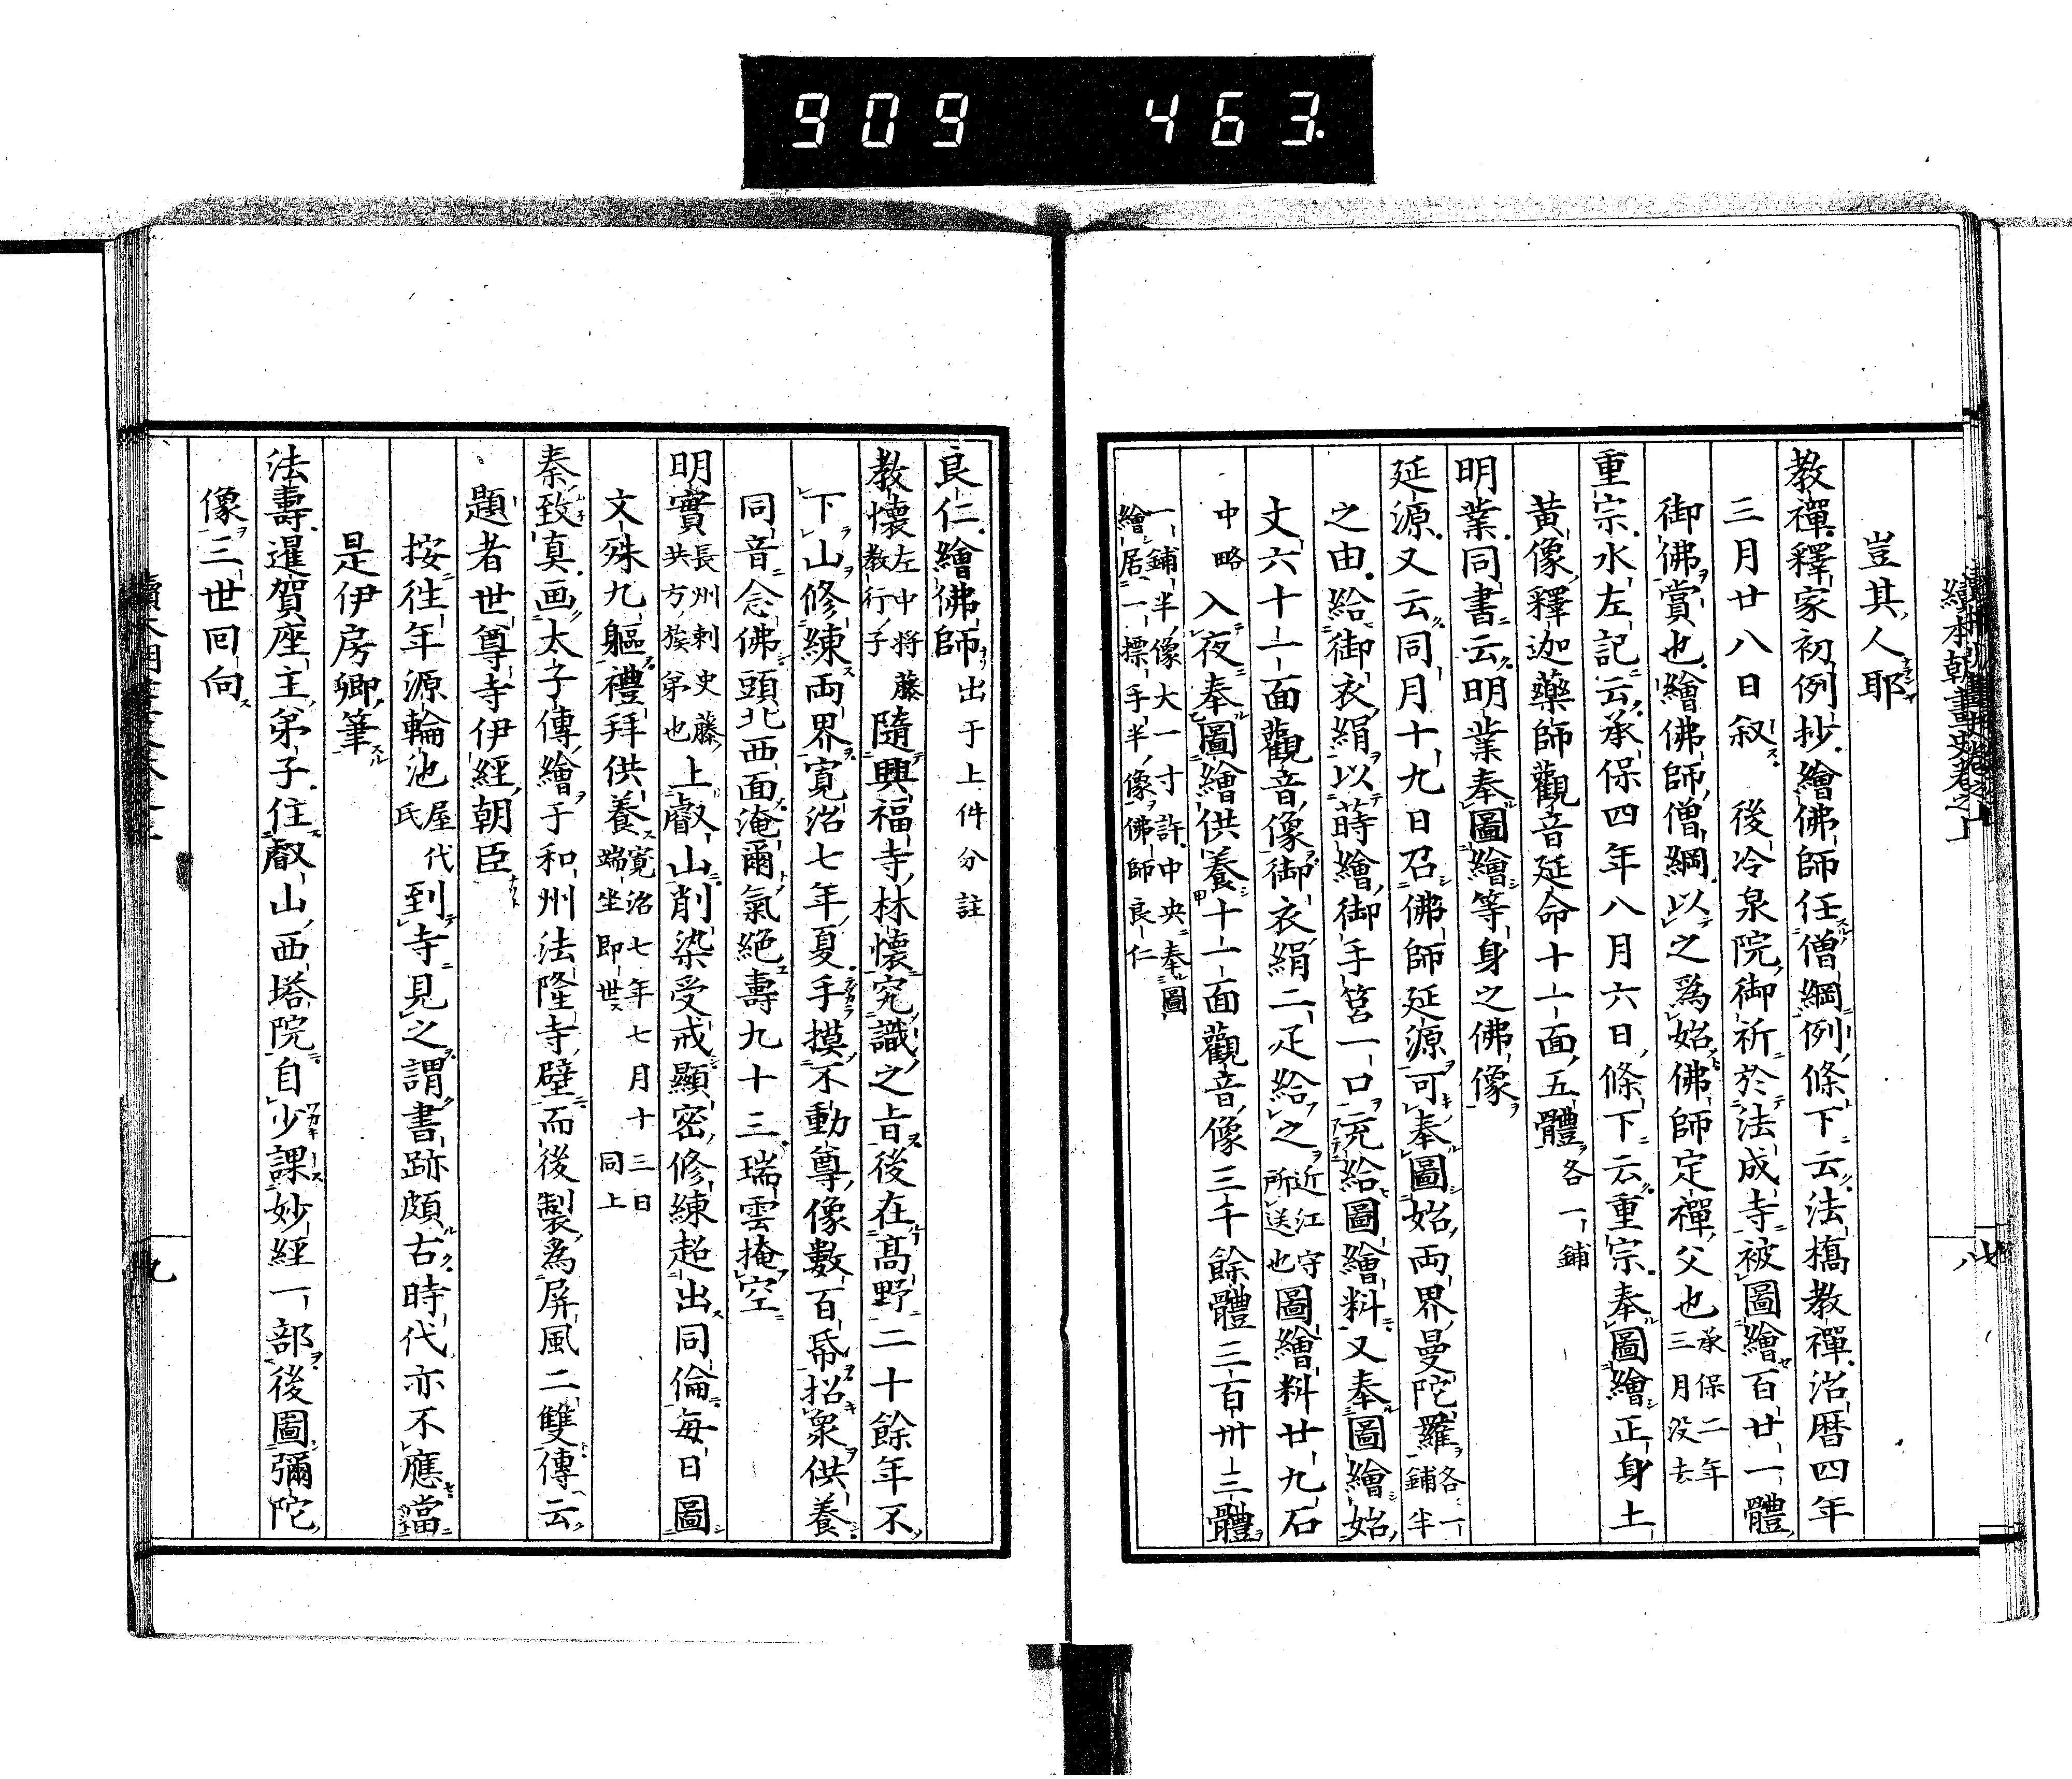 909 463.
續本朝畫史卷之上
八
豈其人耶
教禪釋家初例抄繪佛師任僧綱例條下云法橋教禪治曆四年
三月廿八日叙 後冷泉院御祈於法成寺被圖繪百廿一體
御佛賞也繪佛師僧綱以之爲始佛師定禪父也承保二年三月没去
重宗水左記云承保四年八月六日條下云重宗奉圖繪正身土
黃像釋迦藥師觀音延命十一面五體各一鋪
明業同書云明業奉圖繪等身之佛像
延源又云同月十九日召佛師延源可奉圖始兩界曼陀羅各一鋪半
之由給御衣絹以蒔繪御手筥一口充給圖繪料又奉圖繪始
丈六十一面觀音像御衣絹二疋給之近江守所送也圖繪料廿九石
中略 入夜奉圖繪供養十一面觀音像三千餘體三百卅三體
一鋪半像大一寸許中央奉圖繪居一㯹手半像佛師良仁
良仁繪佛師出于上件分註
教懷左中将藤教行子隨興福寺林懷究識之旨後在高野二十餘年不
下山修練兩界寛治七年夏手摸不動尊像數百帋招衆供養
同音念佛頭北西面淹爾氣絕壽九十三瑞雲掩空
明實長州刺史藤共方蔟弟也上叡山削染受戒顯密修練超出同倫每日圖
文殊九軀禮拜供養寛治七年七月十三日端坐即世同上
秦致真画太子傳繪于和州法隆寺壁而後製爲屏風二雙傳云
題者世尊寺伊經朝臣
按徃年源輪池屋代氏到寺見之謂書跡頗古時代亦不應當
是伊房卿筆
法壽暹賀座主弟子住叡山西塔院自少課妙經一部後圖彌陀
像三世回向
九